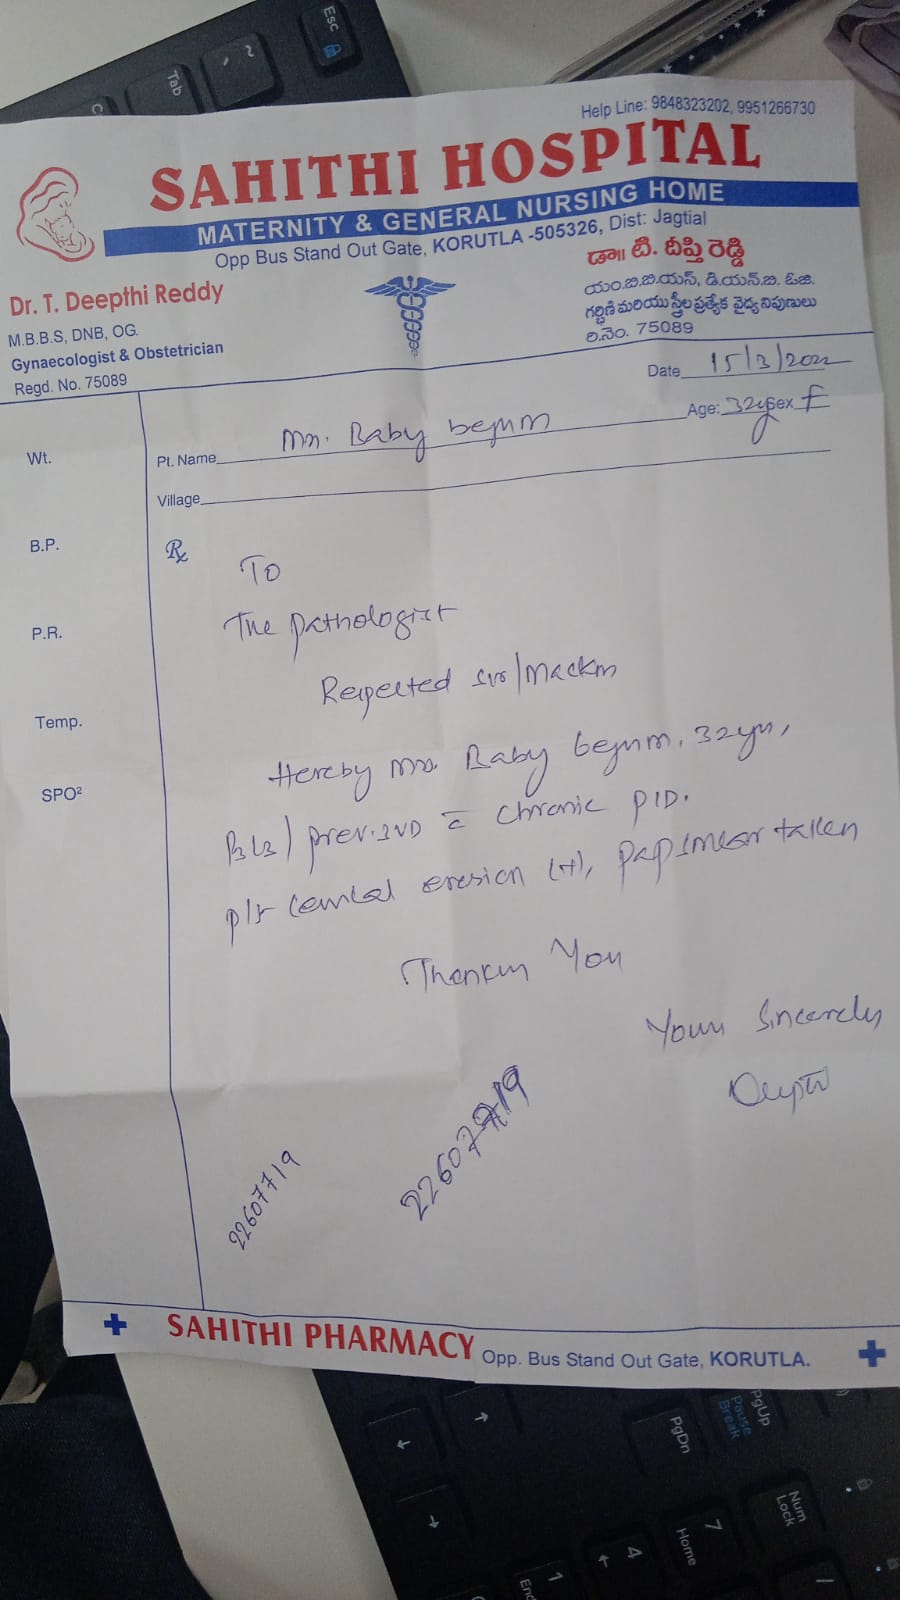 Help Line: 9848323202, 9951266730
SAHITHI HOSPITAL
MATERNITY & GENERAL NURSING HOME
Opp Bus Stand Out Gate, KORUTLA -505326, Dist: Jagtial
Dr. T. Deepthi Reddy
M.B.B.S, DNB, OG.
Gynaecologist & Obstetrician
Regd. No. 75089
డా॥ టి. దీప్తి రెడ్డి
యం.బి.బి.యస్, డి.యన్.బి. ఓ.జి.
గర్భిణి మరియు స్త్రీల ప్రత్యేక వైద్య నిపుణులు
రి.నెం. 75089
Date 15/3/2022
Pt. Name Mrs. Baby begum Age: 32y Sex F
Village
Wt.
B.P.
P.R.
Temp.
SPO²
Rx
To
The pathologist
Respected sir/Madam
Hereby Mrs. Baby begum, 32yrs,
P3L3 / prev.3VD c̄ chronic PID.
p/s cervical erosion (+), papsmear taken
Thanking You
Yours Sincerely
22607719
22607719
SAHITHI PHARMACY Opp. Bus Stand Out Gate, KORUTLA.
Esc
Tab
~
PgUp
Pause
Break
PgDn
Num
Lock
7
Home
4
1
End